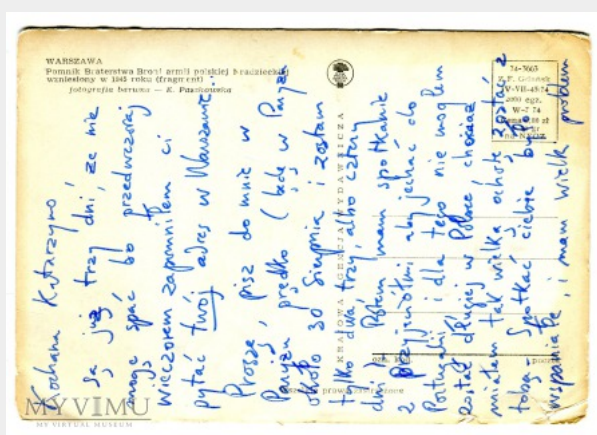 WARSZAWA
Pomnik Braterstwa Broni armii polskiej i radzieckiej
wzniesiony w 1945 roku (fragment)
fotografia barwna — K.
74-3665
V-VII-4874
2000 egz.
W-7 74
KRAJOWA AGENCJA WYDAWNICZA
Kochana Katarzyno,
Są już trzy dni że nie
mogę spać bo przedwczoraj
wieczorem zapomniłem ci
pytać twój adres w Warszawie...
Proszę, pisz do mnie w
Paryżu prędko (będę w Paryżu
około 30 Sierpnia i zostam
tylko dwa, trzy, albo cztery
dni). Potem mam spotkanie
z przyjaciółmi aby jechać do
Portugalii i dla tego nie mogłem
zostać dłużej w Polsce chociaż
miałam tak wielka ochotę zostać z
tobą. Spotkać ciebie było
wspaniałe, i mam wielk problem
MYVIMU
MY VIRTUAL MUSEUM